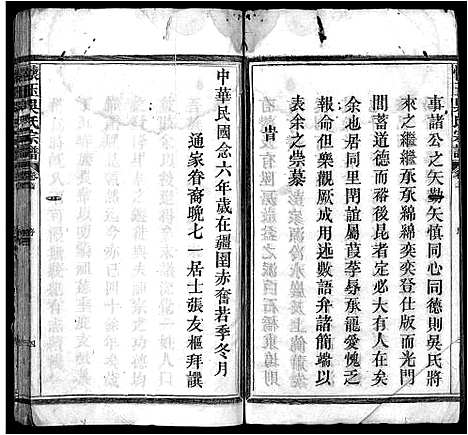 事諸公之矢勤矢慎同心同德則吳氏將
來之繼繼承承綿綿奕奕登仕版而光門
閭蓄道德而裕後昆者定必大有人在矣
余也居同里閈誼屬葭莩辱承寵愛愧乏
報命但樂觀厥成用述數語弁諸簡端以
表余之崇慕
旹
中華民國念六年歲在疆圉赤奮若季冬月
通家眷裔晚七一居士張友樞拜譔
懷玉吳氏宗譜